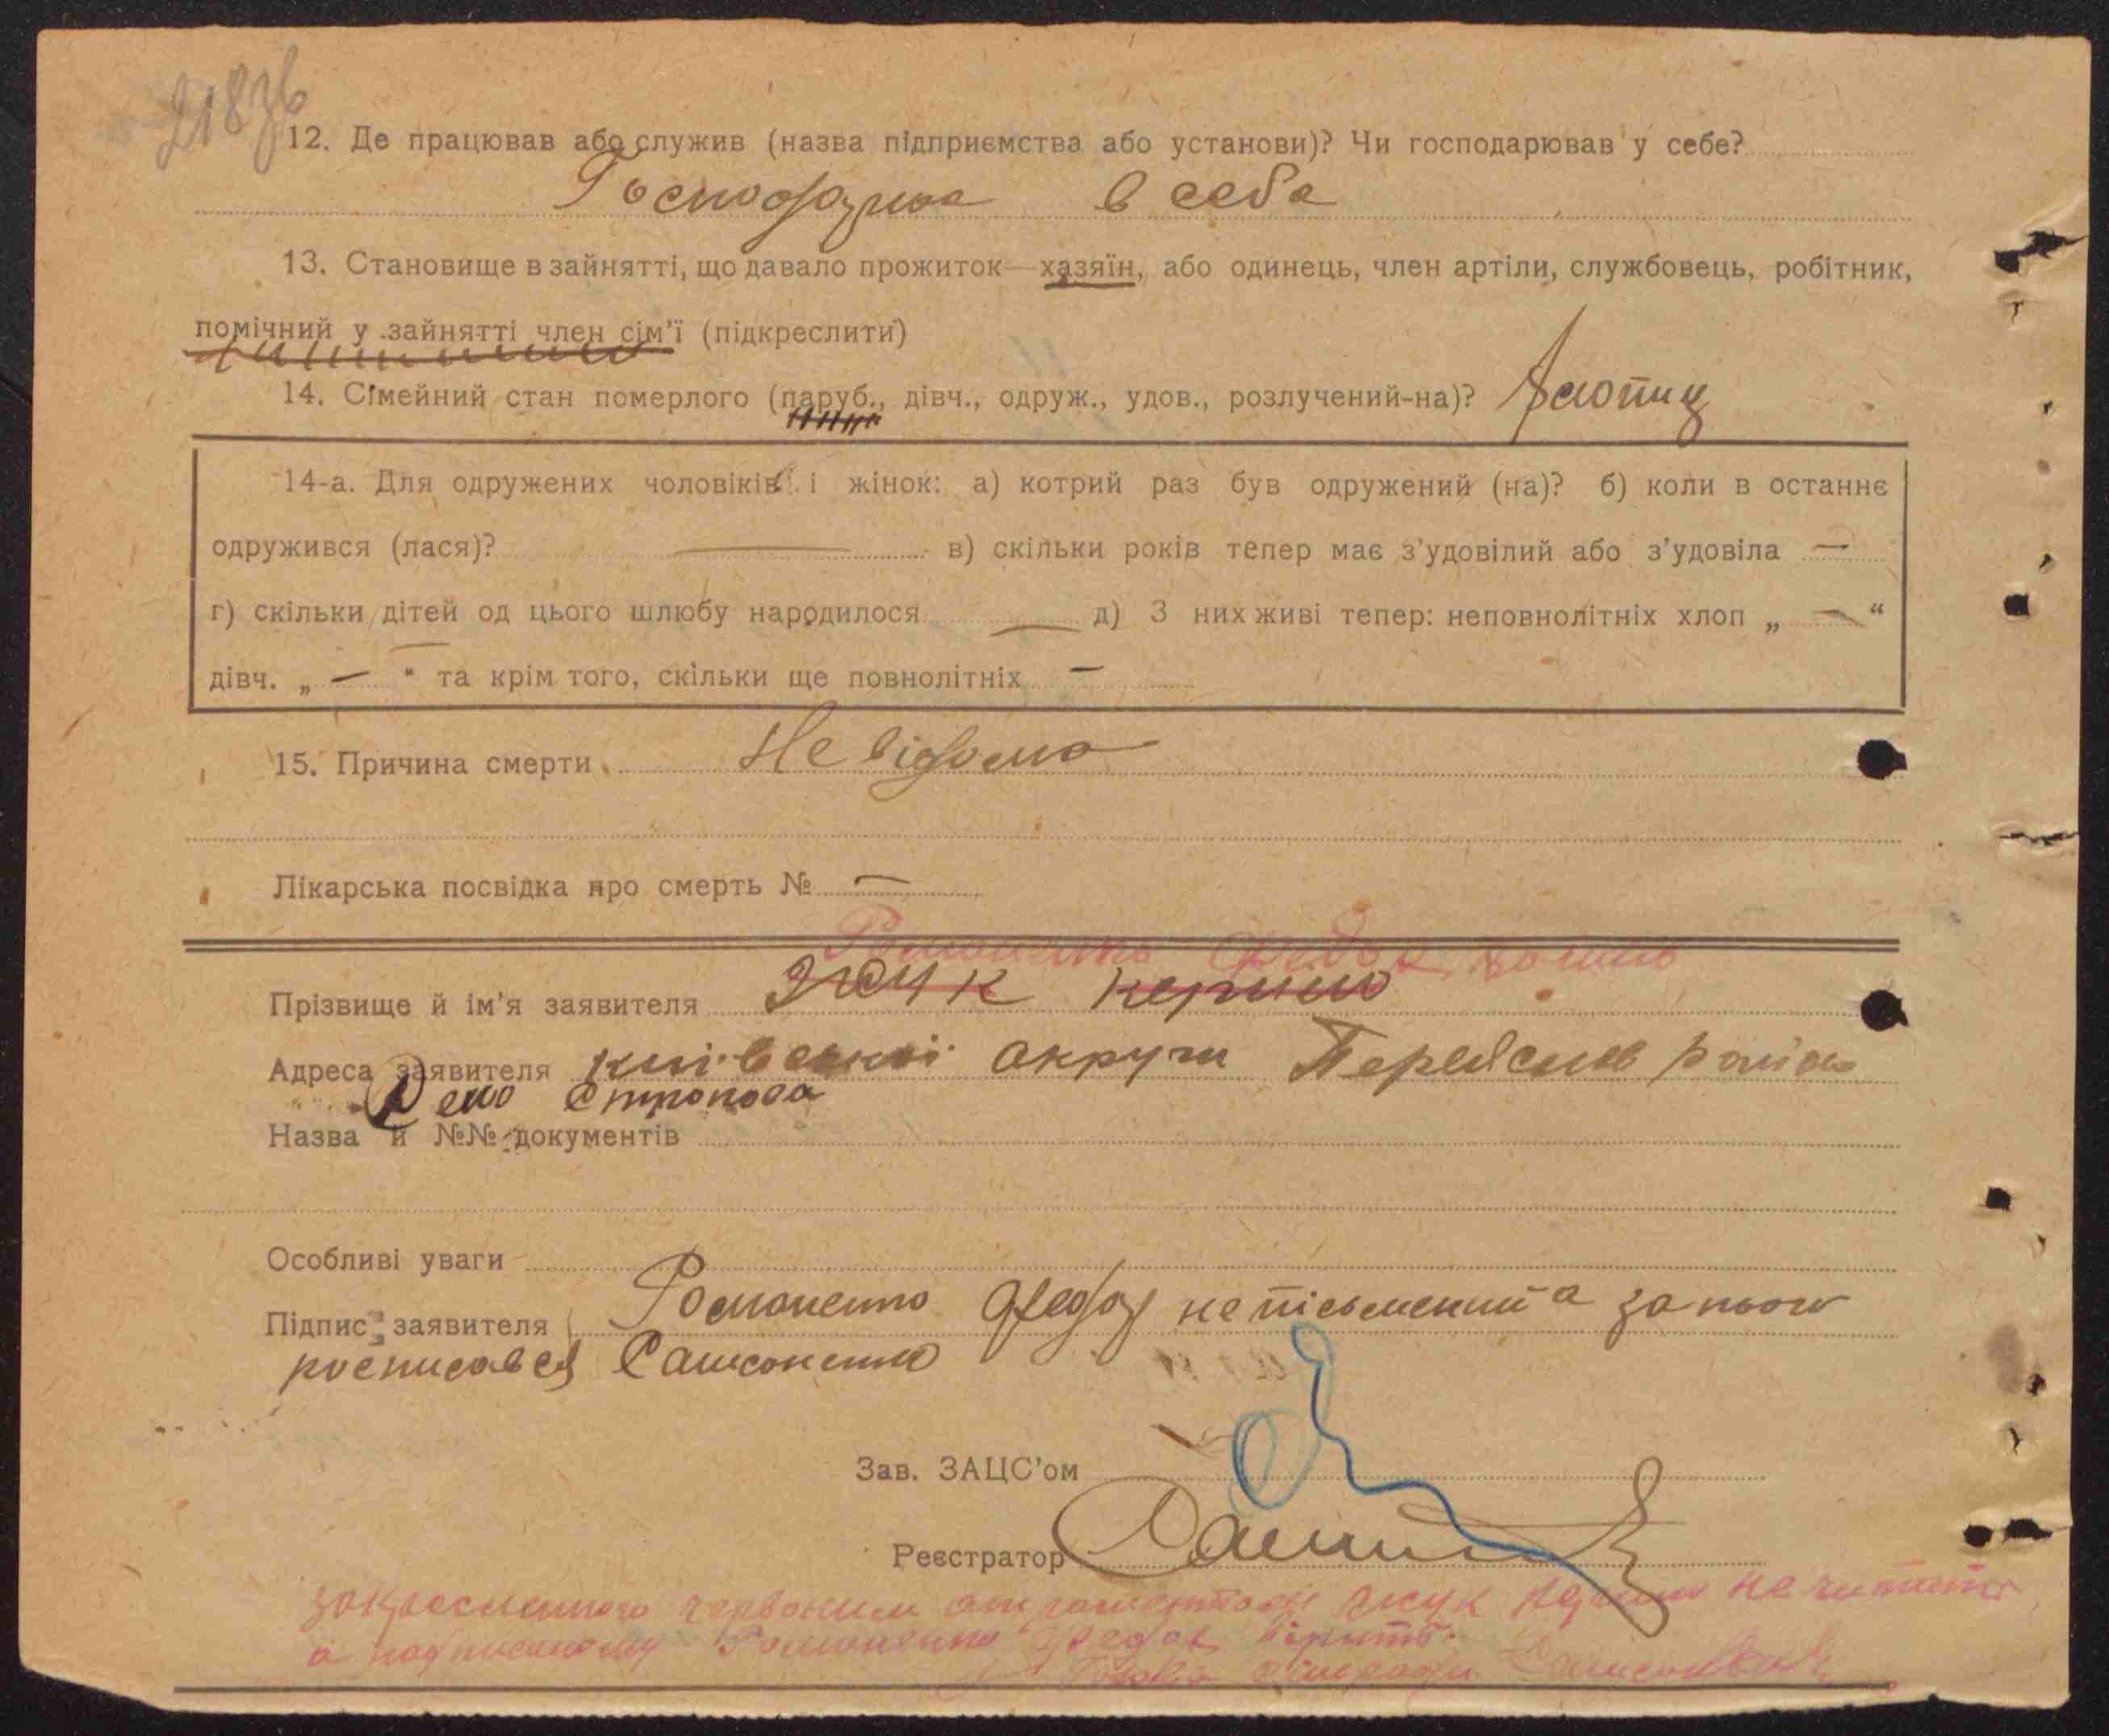 218зв
12. Де працював або служив (назва підприємства або установи)? Чи господарював у себе?
в себе
13. Становище в зайнятті, що давало прожиток—хазяїн, або одинець, член артіли, службовець, робітник,
помічний у зайнятті член сім'ї (підкреслити)
14. Сімейний стан померлого (паруб., дівч., одруж., удов., розлучений-на)?
14-а. Для одружених чоловіків і жінок: а) котрий раз був одружений (на)? б) коли в останнє
одружився (лася)? — в) скільки років тепер має з'удовілий або з'удовіла —
г) скільки дітей од цього шлюбу народилося — д) З них живі тепер: неповнолітніх хлоп „ — “
дівч. „ — “ та крім того, скільки ще повнолітніх —
15. Причина смерти Невідома
Лікарська посвідка про смерть № —
Романенко Федор
Прізвище й ім'я заявителя Жук
Адреса заявителя київської округи Переяслав району
Село Строкова
Назва й №№ документів
Особливі уваги
Підпис заявителя Романенко Федор непісьменний а за нього
росписався Самсоненко
Зав. ЗАЦС'ом
Реєстратор
закресленного червоним атраментом Жук не читати,
а надписаному Романенко Федор вірити.
Голова сільради